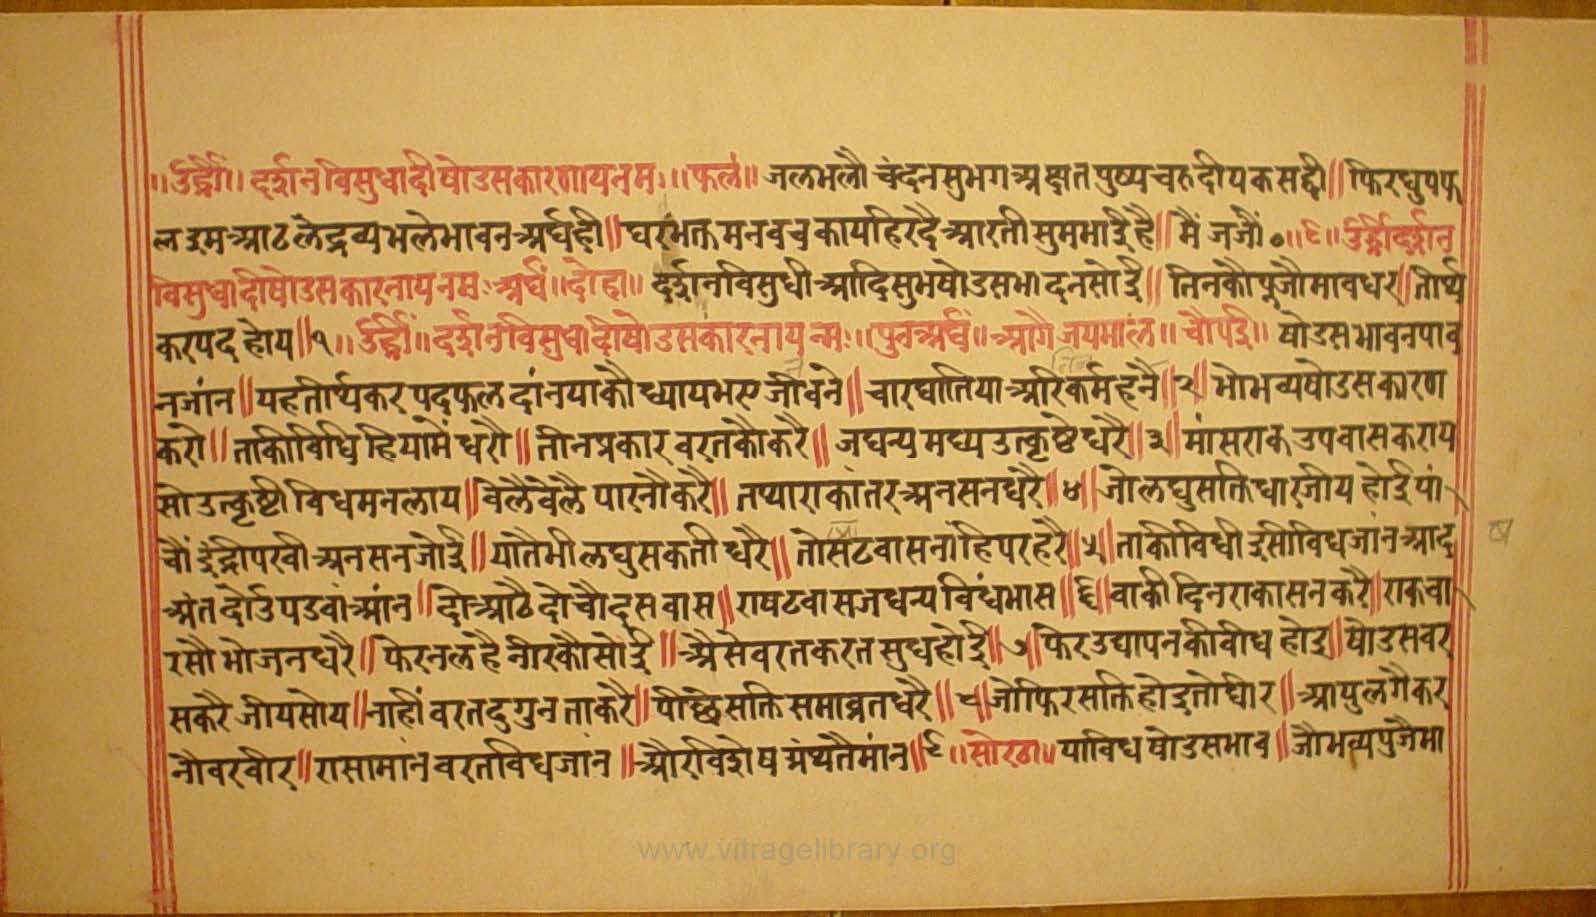 ॥र्उह्रीं॥ दर्शनविसुधादीषोडसकारणायनमः॥फलं॥ जलभलौ चंदनसुभगअक्षातपुष्पचरुदीपकसही॥ फिरधुपफ
लइमआठलेद्रव्यभलेभावनअर्घही॥ घरभक्तमनवचकायहिरदै आरतीसुमभाई है॥ मैं जजौं०॥८॥ र्उह्रींदर्शन
विसुधादीषोडसकारनायनमः अर्घं॥दोहा॥ दर्शनविसुधीआदिसुभषोडसभादनसोई॥ तिनकौपुजौभावधर॥तीर्थ
करपद होय॥१॥ र्उह्रीं॥ दर्शनविसुधादीषोडसकारनायन्मः॥पुनअर्घं॥ आगै जयमाल॥ चौपई॥ षोडसभावनपाव
नजांन॥ यहतीर्थकर पदफल दांनयाकौ ध्यायभए जीवने॥ चारघातिया अरिकर्म हनै॥२॥ भोभव्यषोडसकारण
करो॥ ताकीविधि हियामें धरौ॥ तीनप्रकार वरतकौकरै॥ जघन्य मध्य उत्कृष्टे धरै॥३॥ मांसराक उपवासकराय
सो उत्कृष्टी विधमनलाय॥ वेलैवेलै पारनौकरै॥ तप्याराकांतरअनसनधरै॥४॥ जोलघुसक्तिधारजीय होई पां
चौं इंद्रीपरवी अनसनजोई॥ यातैभी लघुसकती धरै॥ तोसटवासनांहिपरहरै॥५॥ ताकीविधी इसीविधजांनआद
अंत दोउपडवांआंन॥ दोआठै दोचौदसवास॥ राषटवासजधन्य विधंभास॥६॥ वाकीदिनराकासनकरै॥ राकवा
रसौ भोजनधरै॥ फिरनलहै नीरकौसोई॥ अैसेवरतकरतसुधहोई॥७॥ फिरउद्यापनकीवीध होइ॥ षोडसवर
सकरै जीयसोय॥ नाहीं वरतदुगुन ताकरै॥ पीछेसक्तिसमाव्रतधरै॥८॥ जोफिरसक्तिहोइतोधीर॥ आयुलगैकर
नौवरवीर॥ रासामांनवरतविधजांन॥ औरविशेषग्रंथतैमांन॥९॥ सोरठा॥ याविध षोडसभाव॥ जौभव्यपुजैमा
www.vitragelibrary.org